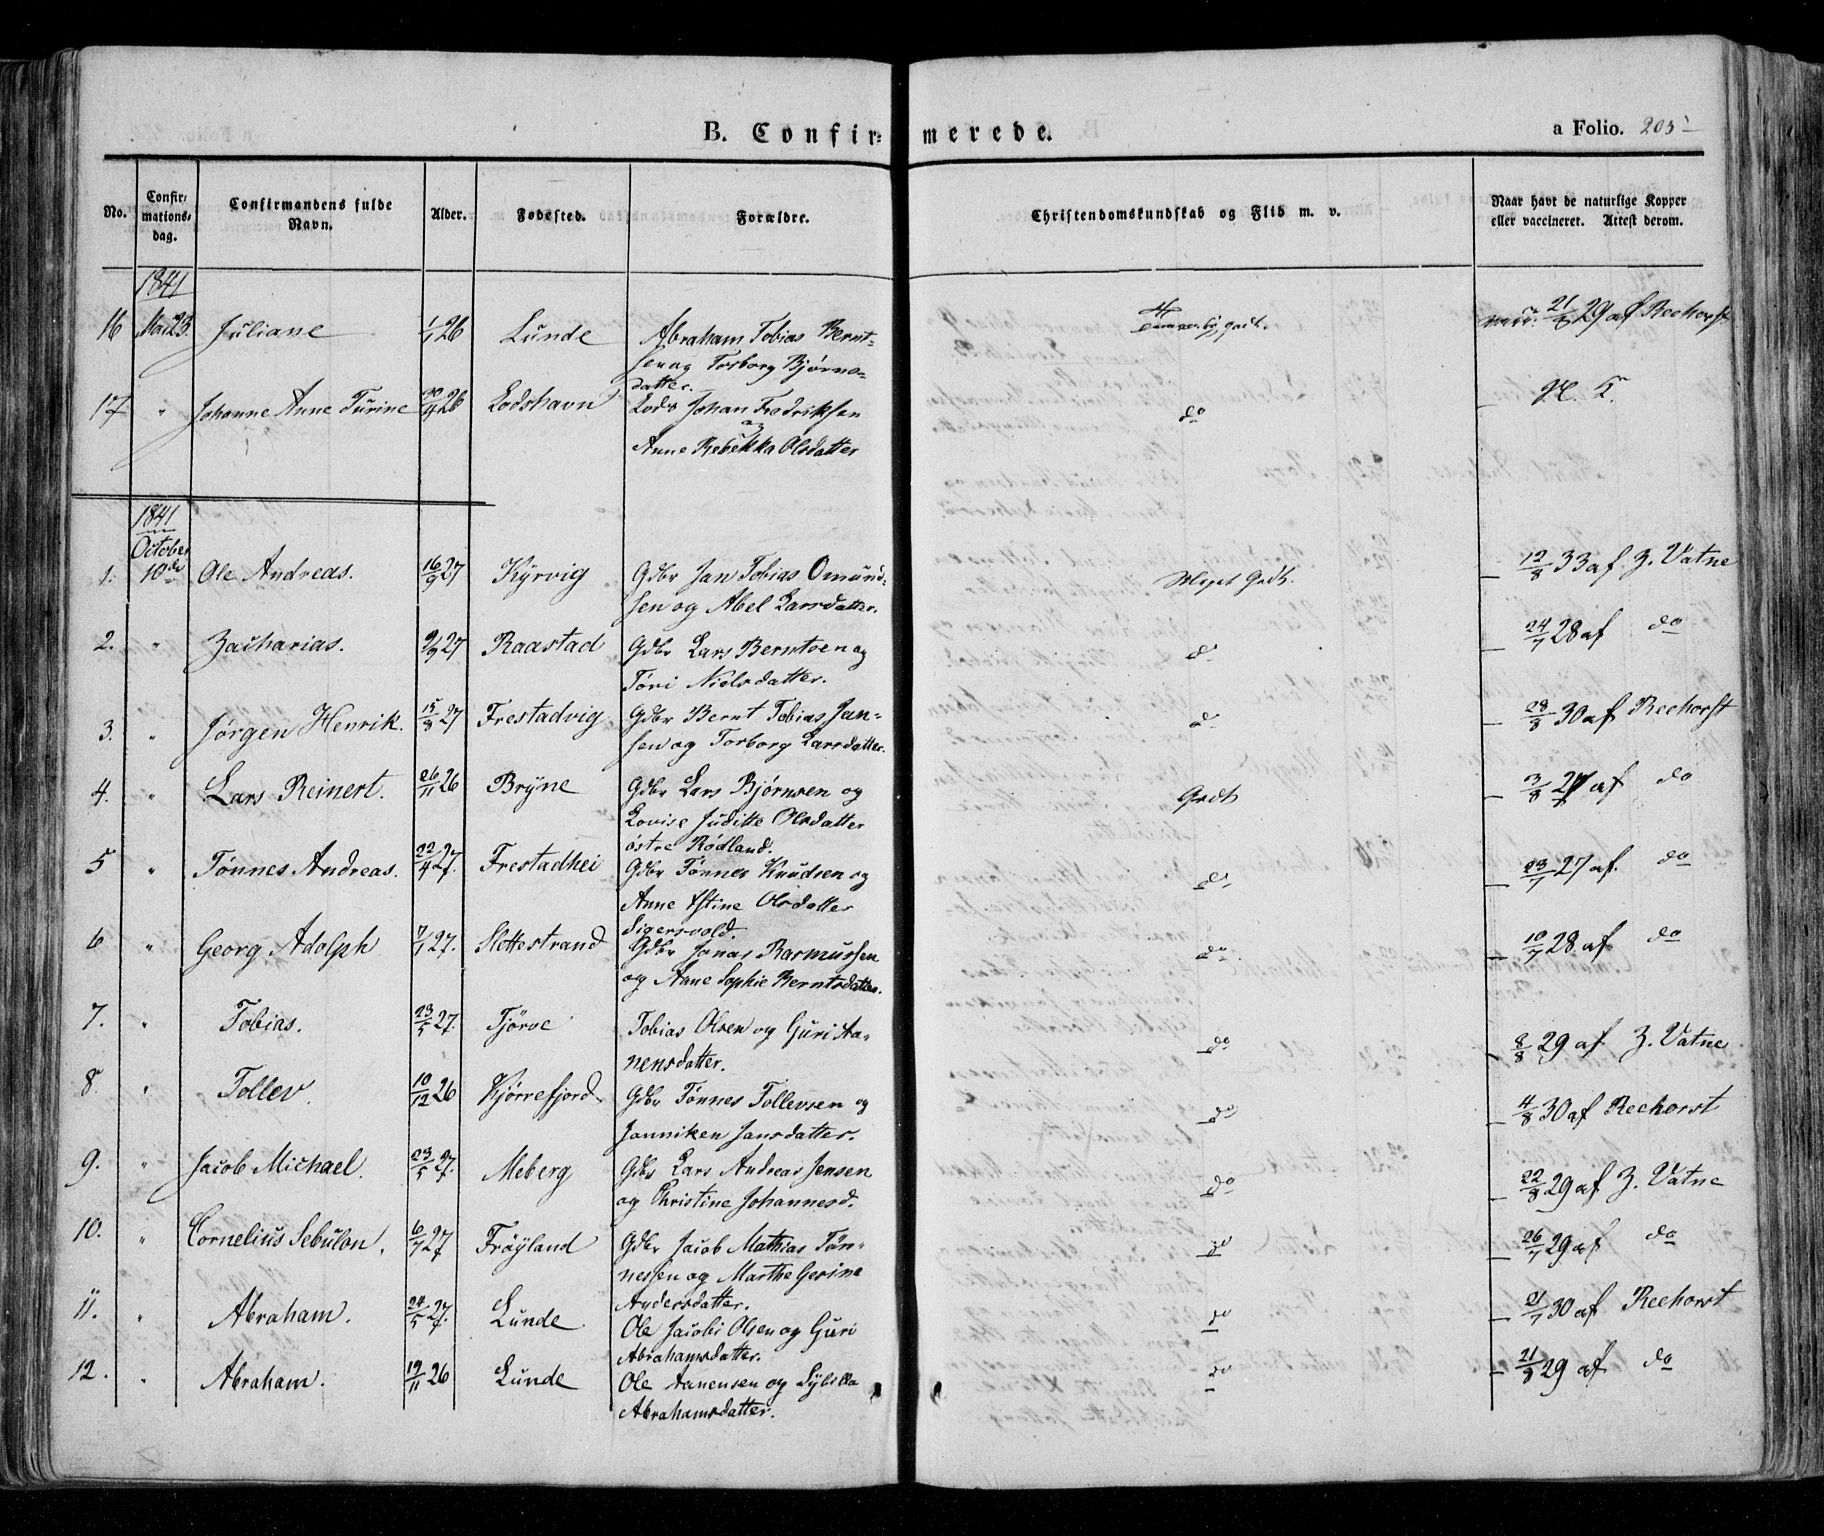 B. Confirmerede.
a Folio. 205
No.
Confirmations-dag.
Confirmandens fulde Navn.
Alder.
Fødested.
Forældre.
Christendomskundskab og Flid m. v.
Naar havt de naturlige Kopper eller vaccineret. Attest derom.
1841
16 Mai 23. Juliane 1/1 26 Lunde Abraham Tobias Bernt- 21/8 29 af Reehorst
sen og Torborg Bjørns-
datter.
17 " Johanne Anne Turine 30/4 26 Lodshavn Lods Johan Fredriksen do
og
Anne Rebekka Olsdatter
1841
October
1. 10de Ole Andreas. 16/9 27 Kyrvig Gdbr Jan Tobias Omund- Meget Godt. 12/8 33 af Z. Vatne
sen og Abel Larsdatter.
2. " Zacharias. 9/9 27 Raastad Gdbr Lars Berntsen og do 24/7 28 af do
Töri Nielsdatter.
3. " Jørgen Henrik. 15/3 27 Frestadvig Gdbr Bernt Tobias Jan- do 28/8 30 af Reehorst
sen og Torborg Larsdatter.
4. " Lars Reinert. 26/11 26 Bryne Gdbr Lars Bjørnsen og Godt 3/8 27 af do
Lovise Juditte Olsdatter
østre Rødland.
5 " Tønnes Andreas. 22/4 27. Frestadhei Gdbr Tønnes Knudsen og do 23/7 27 af. do
Anne Stine Olsdatter
Sigersvold.
6 " Georg Adolph 7/1 27. Slettestrand Gdbr Jonas Rasmussen do 10/7 28 af do
og Anne Sophie Berntsdatter.
7. " Tobias. 23/5 27. Tjörve Tobias Olsen og Guri Aa- do 8/8 29 af Z. Vatne
nensdatter.
8. " Tollev. 10/12 26 Kjørrefjord Gdbr Tønnes Tollevsen og do 4/8 30 af Reehorst
Janniken Jansdatter.
9. " Jacob Michael. 23/5 27. Meberg Gdbr Lars Andreas Jensen do 22/8 29 af Z. Vatne
og Christine Johannesd.
10. " Cornelius Sebulon. 6/7 27 Frøyland Gdbr Jacob Mathias Tøn- do 26/7 29 af do
nessen og Marthe Gerine
Andersdatter.
11. " Abraham. 24/5 27. Lunde Ole Jacobi Olsen og Guri do 21/7 30 af Reehorst
Abrahamsdatter.
12. " Abraham. 19/11 26 Lunde Ole Aanensen og Sybilla do 21/8 29 af do
Abrahamsdatter.